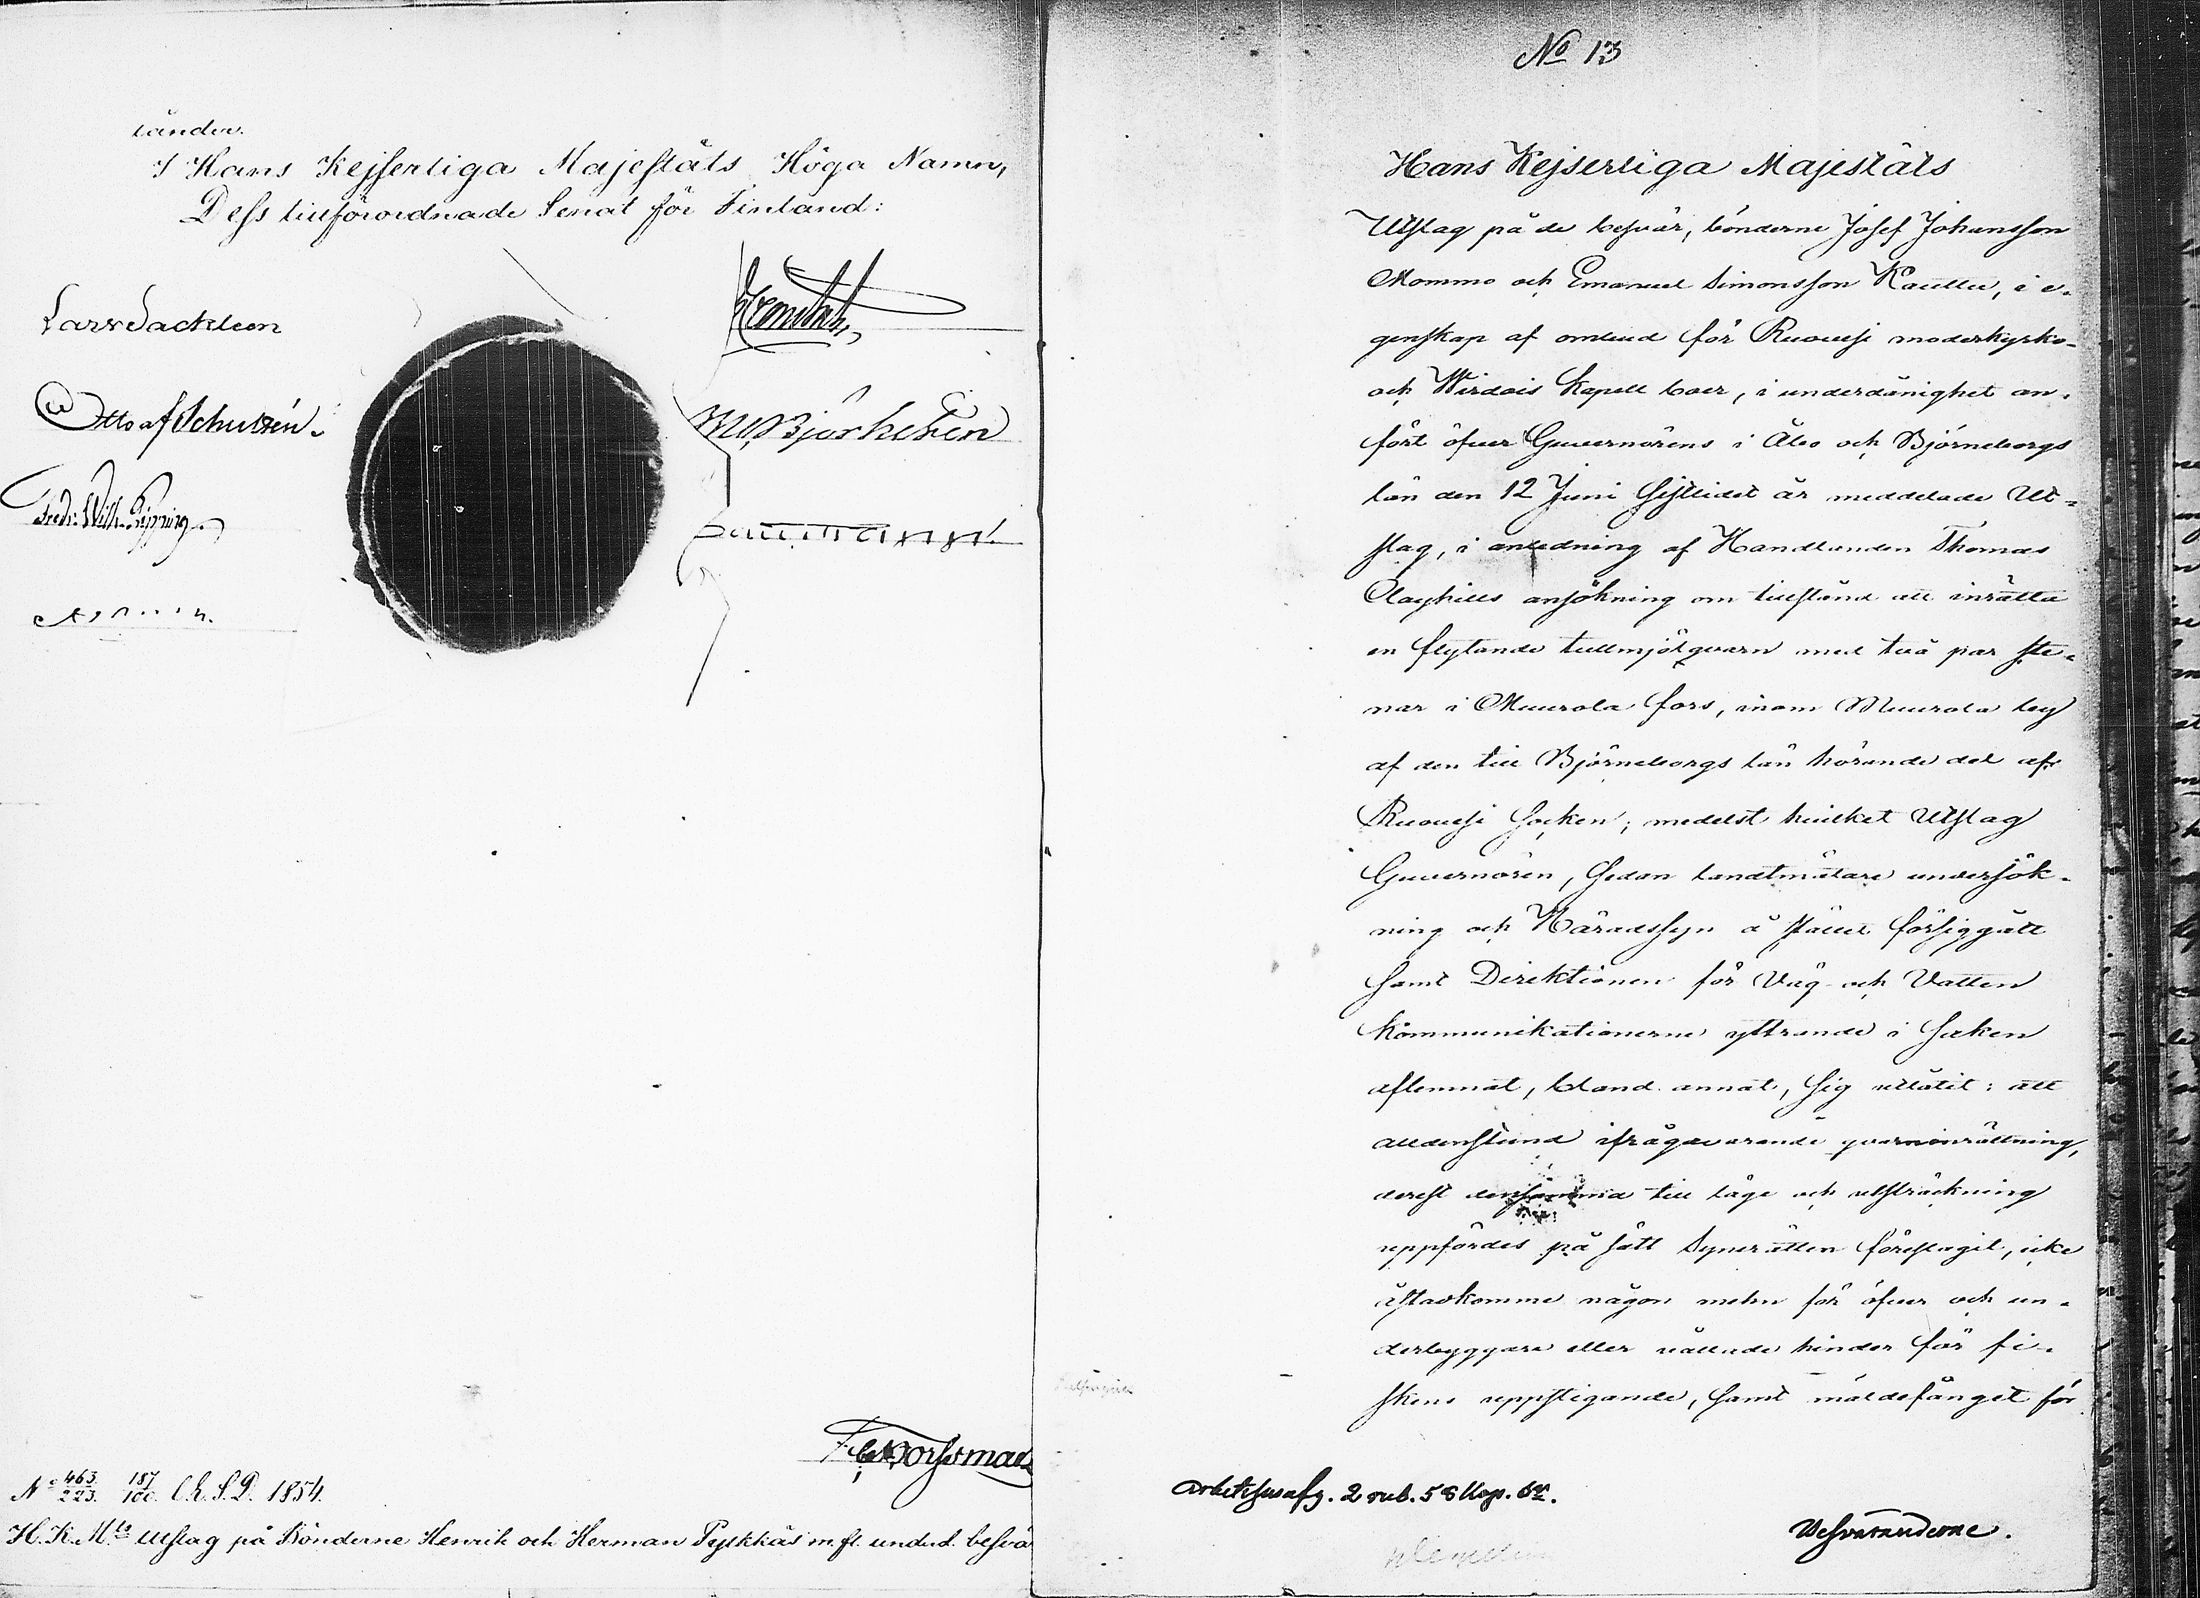 länder.
I Hans Kejserliga Majestäts Höga Namn,
Dess tillförordnade Senat för Finland:
Lars Sackleen
Otto af Schultén.
Fredr. Wilh. Kipping
M. Björkstén
Forssman
N° 463/223. 187/100. E.S.D. 1854.
H. K. M:ts Utslag på Bönderne Henrik och Herman Pytkkäs m. fl. underd. besvä
No 13
Hans Kejserliga Majestäts
Utslag på de besvär, bönderne Josef Johansson
Mommo och Emanuel Simonsson Kauttu, i e-
genskap af ombud för Ruovesi moderkyrko-
och Wirdois Kapell boer, i underdånighet an-
fört öfver Guvernörens i Åbo och Björneborgs
län den 12 Juni sistlidet år meddelade Ut-
slag, i anledning af Handlanden Thomas
Clayhills ansökning om tillstånd att inrätta
en flytande tullmjölqvarn med två par ste-
nar i Muurola fors, inom Muurola by
af den till Björneborgs län hörande del af
Ruovesi Socken; medelst hvilket Utslag
Guvernören, sedan landtmätare undersök-
ning och Häradssyn å stället försiggått
samt Direktionen för Väg- och Vatten
kommunikationerne yttrande i saken
aflemnat, bland annat, sig utlåtit: att
alldenstund ifrågavarande qvarninrättning,
derest densamma till läge och utsträckning
uppfördes på sätt Synerätten föreslagit, icke
åstadkomme någon mehn för öfver och un-
derbyggare eller vållade hinder för fi-
skens uppstigande, samt mäldefånget för
Arbetshusafg. 2 rub. 58 kop. Sr.
Besväranderne.